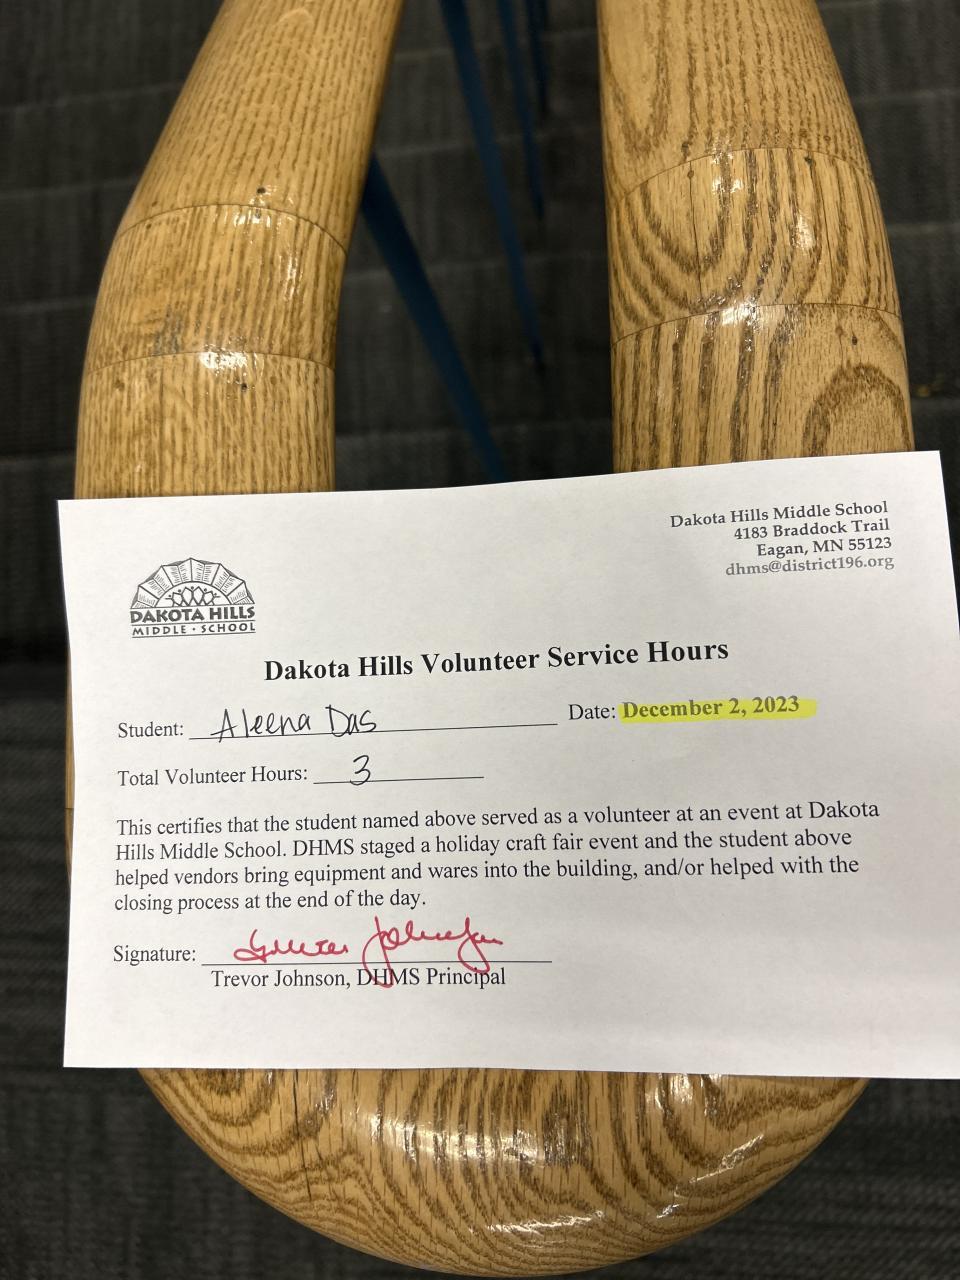 Dakota Hills Middle School
4183 Braddock Trail
Eagan, MN 55123
dhms@district196.org
DAKOTA HILLS
MIDDLE • SCHOOL
Dakota Hills Volunteer Service Hours
Student: Aleena Das Date: December 2, 2023
Total Volunteer Hours: 3
This certifies that the student named above served as a volunteer at an event at Dakota
Hills Middle School. DHMS staged a holiday craft fair event and the student above
helped vendors bring equipment and wares into the building, and/or helped with the
closing process at the end of the day.
Signature: Trevor Johnson
Trevor Johnson, DHMS Principal